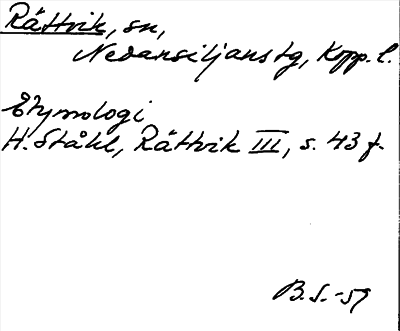 Rättvik, sn,
Nedansiljans tg, Kopp. l.
Etymologi
H. Ståhl, Rättvik III, s. 43 f.
B.S. -59